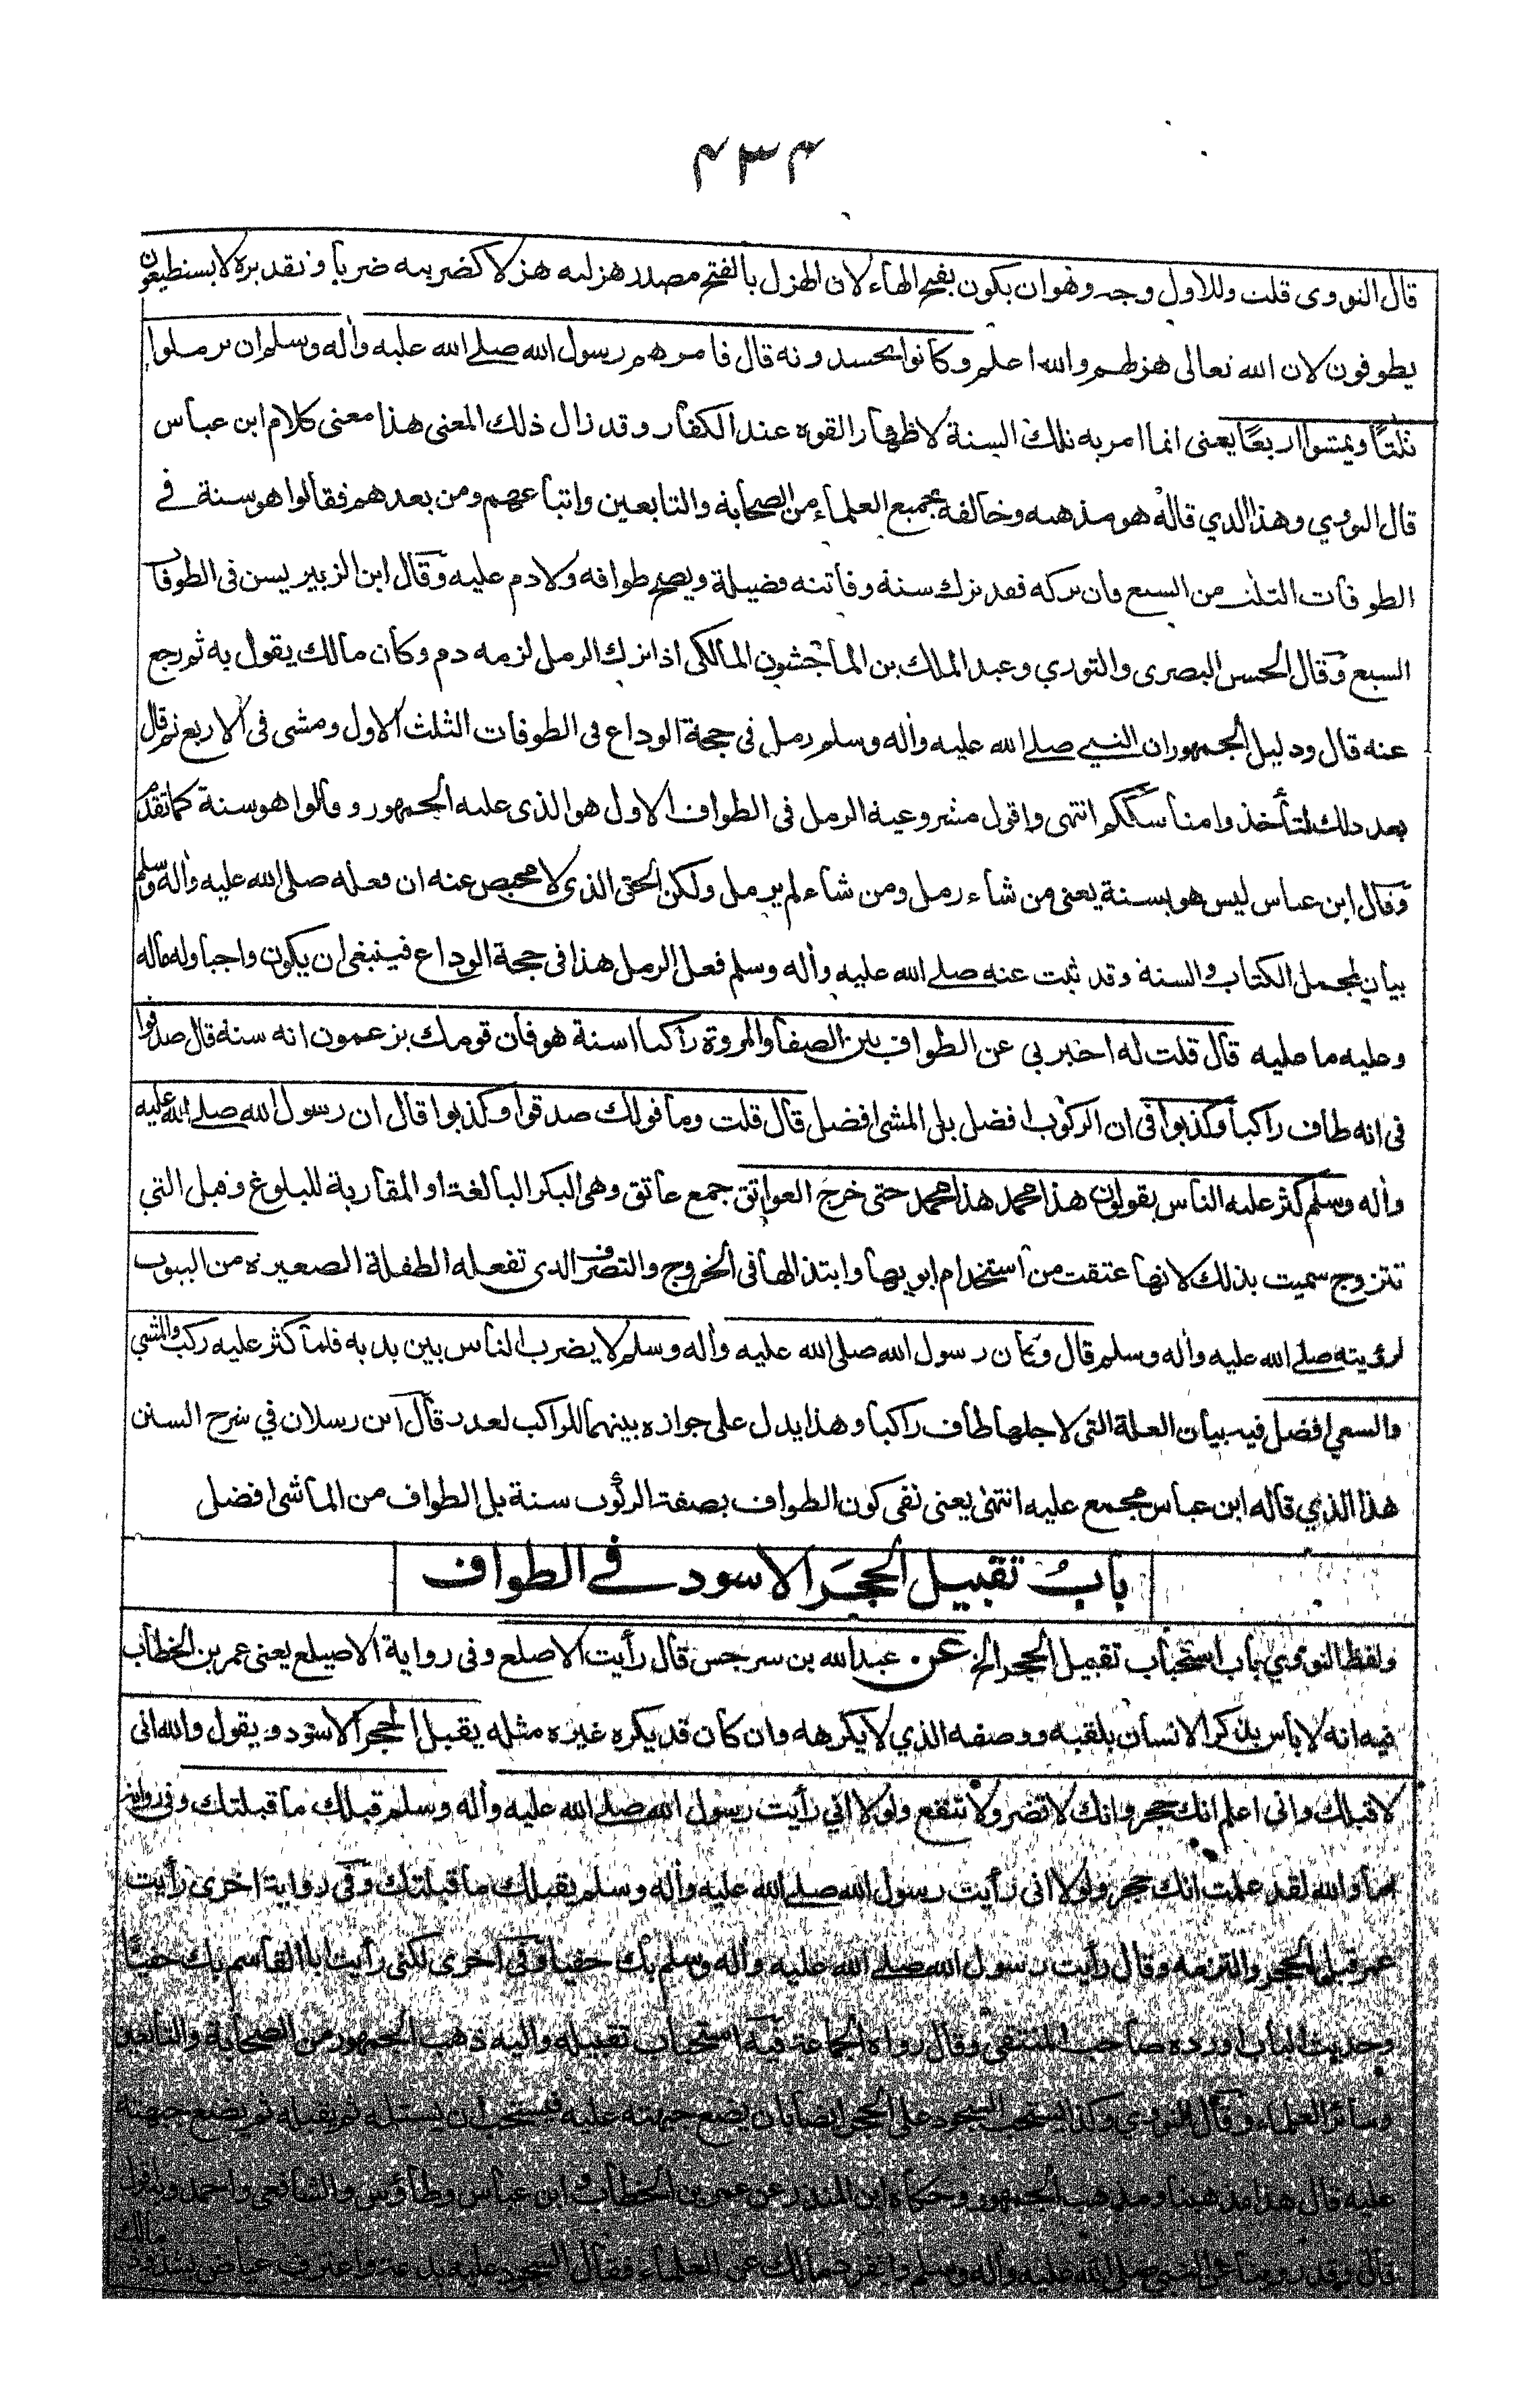 ۴۳۴
قال النووي قلت وللاول وجه وهوان يكون بفتح الهاء لان الهزل بالفتح مصدر هزلته هزلا كضربته ضربا وتقديره لا يستطيعون
يطوفون لان الله تعالى هزلهم والله اعلم وكانوا يحسدونه قال فامرهم رسول الله صلے الله عليه واٰله وسلم ان يرملوا
ثلثًا ويمشوا اربعًا يعنى انما امر به تلك السنة لاظهار القوة عند الكفار وقد زال ذلك المعنى هذا معنى كلام ابن عباس
قال النووي وهذا الذي قاله هو مذهبه وخالفه جميع العلماء من الصحابة والتابعين واتباعهم ومن بعدهم فقالوا هو سنة فے
الطوفات الثلث من السبع فان تركه فقد ترك سنة وفاتته فضيلة ويصح طوافه ولا دم عليه وقال ابن الزبير يسن فى الطوفات
السبع وقال الحسن البصرى والثوري وعبد الملك بن الماجشون المالكى اذا ترك الرمل لزمه دم وكان مالك يقول به ثم رجع
عنه قال ودليل الجمهور ان النبي صلے الله عليه واٰله وسلم رمل فى حجة الوداع فى الطوفات الثلث الاول ومشى فى الاربع ثم قال
بعد ذلك لتأخذوا مناسككم انتهى واقول مشروعية الرمل فى الطواف الاول هو الذى عليه الجمهور وقالوا هو سنة كما تقدم
وقال ابن عباس ليس هو بسنة يعنى من شاء رمل ومن شاء لم يرمل ولكن الحق الذى لا محيص عنه ان فعله صلى الله عليه واٰله وسلم
بيان لمجمل الكتاب والسنة وقد ثبت عنه صلے الله عليه واٰله وسلم فعل الرمل هذا فى حجة الوداع فينبغى ان يكون واجبا وله ماله
وعليه ما عليه قال قلت له اخبرنى عن الطواف بين الصفا والمروة راكبا اسنة هو فان قومك يزعمون انه سنة قال صدقوا
فى انه طاف راكبا وكذبوا فى ان الركوب افضل بل المشى افضل قال قلت وما قولك صدقوا وكذبوا قال ان رسول الله صلے الله عليه
واٰله وسلم كثر عليه الناس يقولون هذا محمد هذا محمد حتى خرج العواتق جمع عاتق وهى البكر البالغة او المقاربة للبلوغ وقيل التي
تتزوج سميت بذلك لانها عتقت من استخدام ابويها وابتذالها فى الخروج والتصرف الذى تفعله الطفلة الصغيرة من البيوت
لرؤيته صلے الله عليه واٰله وسلم قال وكان رسول الله صلى الله عليه واٰله وسلم لا يضرب الناس بين يديه فلما كثر عليه ركب والمشي
والسعي افضل فيه بيان العلة التى لاجلها طاف راكبا وهذا يدل على جوازه بينهما للراكب لعذر قال ابن رسلان في شرح السنن
هذا الذي قاله ابن عباس مجمع عليه انتهى يعنى نفى كون الطواف بصفة الركوب سنة بل الطواف من الماشى افضل
بابُ تقبيل الحجر الاسود فے الطواف
ولفظ النووي باب استحباب تقبيل الحجر الخ عن عبد الله بن سرجس قال رأيت الاصلع وفى رواية الاصيلع يعنى عمر بن الخطاب
فيه انه لا بأس بذكر الانسان بلقبه ووصفه الذي لا يكرهه وان كان قد يكره غيره مثله يقبل الحجر الاسود ويقول والله انى
لاقبلك وانى اعلم انك حجر وانك لا تضر ولا تنفع ولولا اني رأيت رسول الله صلے الله عليه واٰله وسلم قبلك ما قبلتك وفى رواية
اما والله لقد علمت انك حجر ولولا انى رأيت رسول الله صلے الله عليه واٰله وسلم يقبلك ما قبلتك وفى رواية اخرى رأيت
عمر قبل الحجر والتزمه وقال رأيت رسول الله صلے الله عليه واٰله وسلم بك حفيا وفى اخرى لكنى رأيت ابا القاسم بك حفيًا
وحديث الباب اورده صاحب المنتقى وقال رواه الجماعة فيه استحباب تقبيله واليه ذهب الجمهور من الصحابة والتابعين
وسائر العلماء وقال النووي وكذا يستحب السجود على الحجر ايضا بان يضع جبهته عليه فيستحب ان يستلمه ثم يقبله ثم يضع جبهته
عليه قال هذا مذهبنا ومذهب الجمهور وحكاه ابن المنذر عن عمر بن الخطاب وابن عباس وطاؤس والشافعى واحمد وبه اقول
قال وقد روينا عن النبي صلى الله عليه واٰله وسلم وانفرد مالك عن العلماء فقال السجود عليه بدعة واعترف عياض بشذوذ مالك